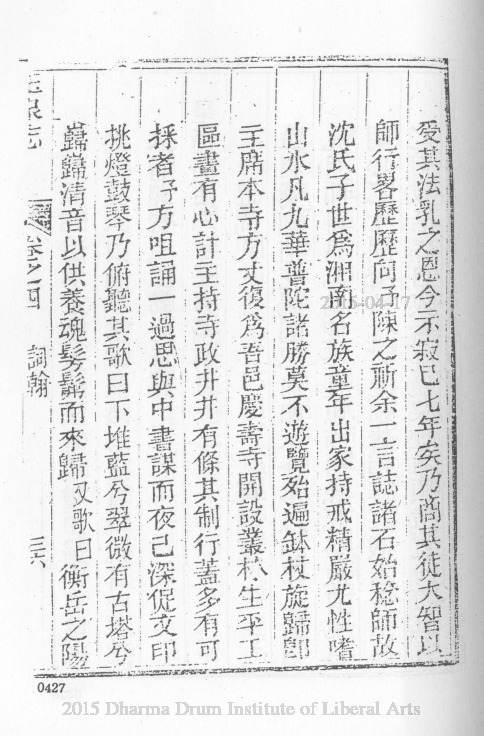 受其法乳之恩今示寂已七年矣乃商其徒大智以
師行畧歷歷向予陳之祈余一言誌諸石始稔師故
沈氏子世爲湘南名族童年出家持戒精嚴尤性嗜
山水凡九華普陀諸勝莫不遊覽殆遍缽杖旋歸卽
主席本寺方丈復爲吾邑慶壽寺開設叢林生平工
區畫有心計主持寺政井井有條其制行蓋多有可
採者予方咀誦一過思與中書謀而夜已深促文印
挑燈鼓琴乃俯聽其歌曰下堆藍兮翠微有古塔兮
巋巋清音以供養魂髣髴而來歸又歌曰衡岳之陽
玉泉志 卷之四 詞翰 三六
0427
2015-04-17
2015 Dharma Drum Institute of Liberal Arts